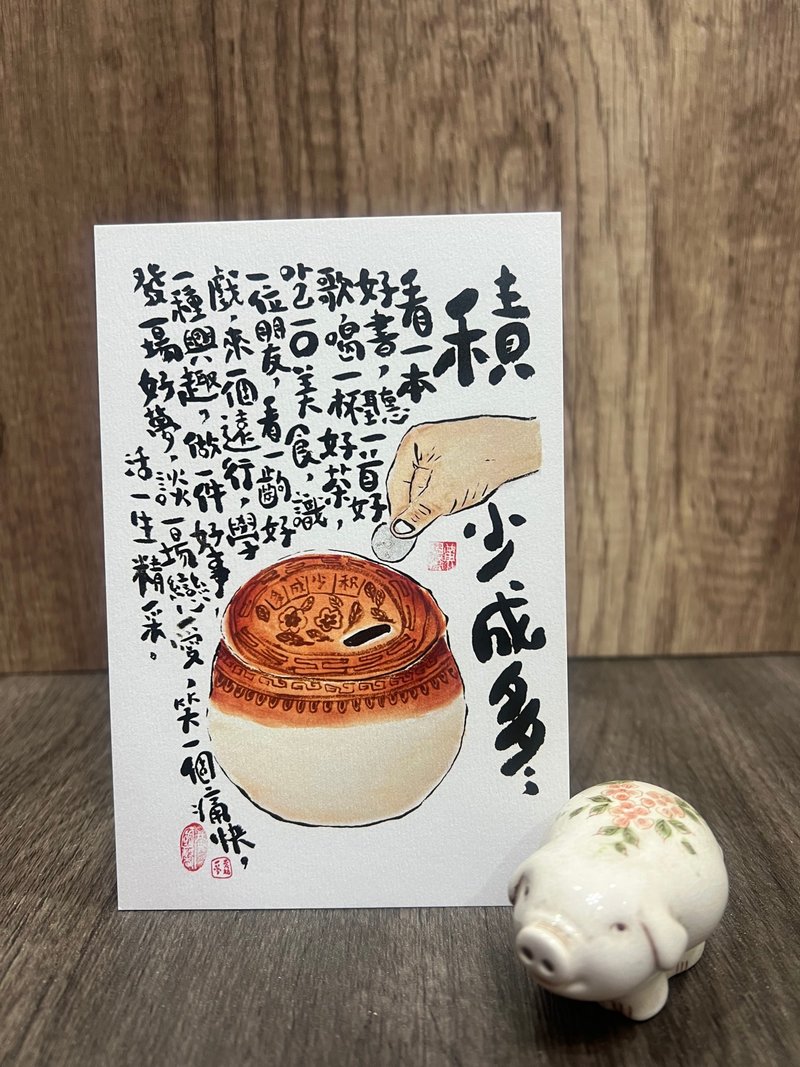 積少成多；
看一本
好書，聽一首好
歌，喝一杯好茶，
吃一口美食，識
一位朋友，看一齣好
戲，來一個遠行，學
一種興趣，做一件好事，
發一場好夢，談一場戀愛，笑一個痛快，
活一生精采。
积少成多